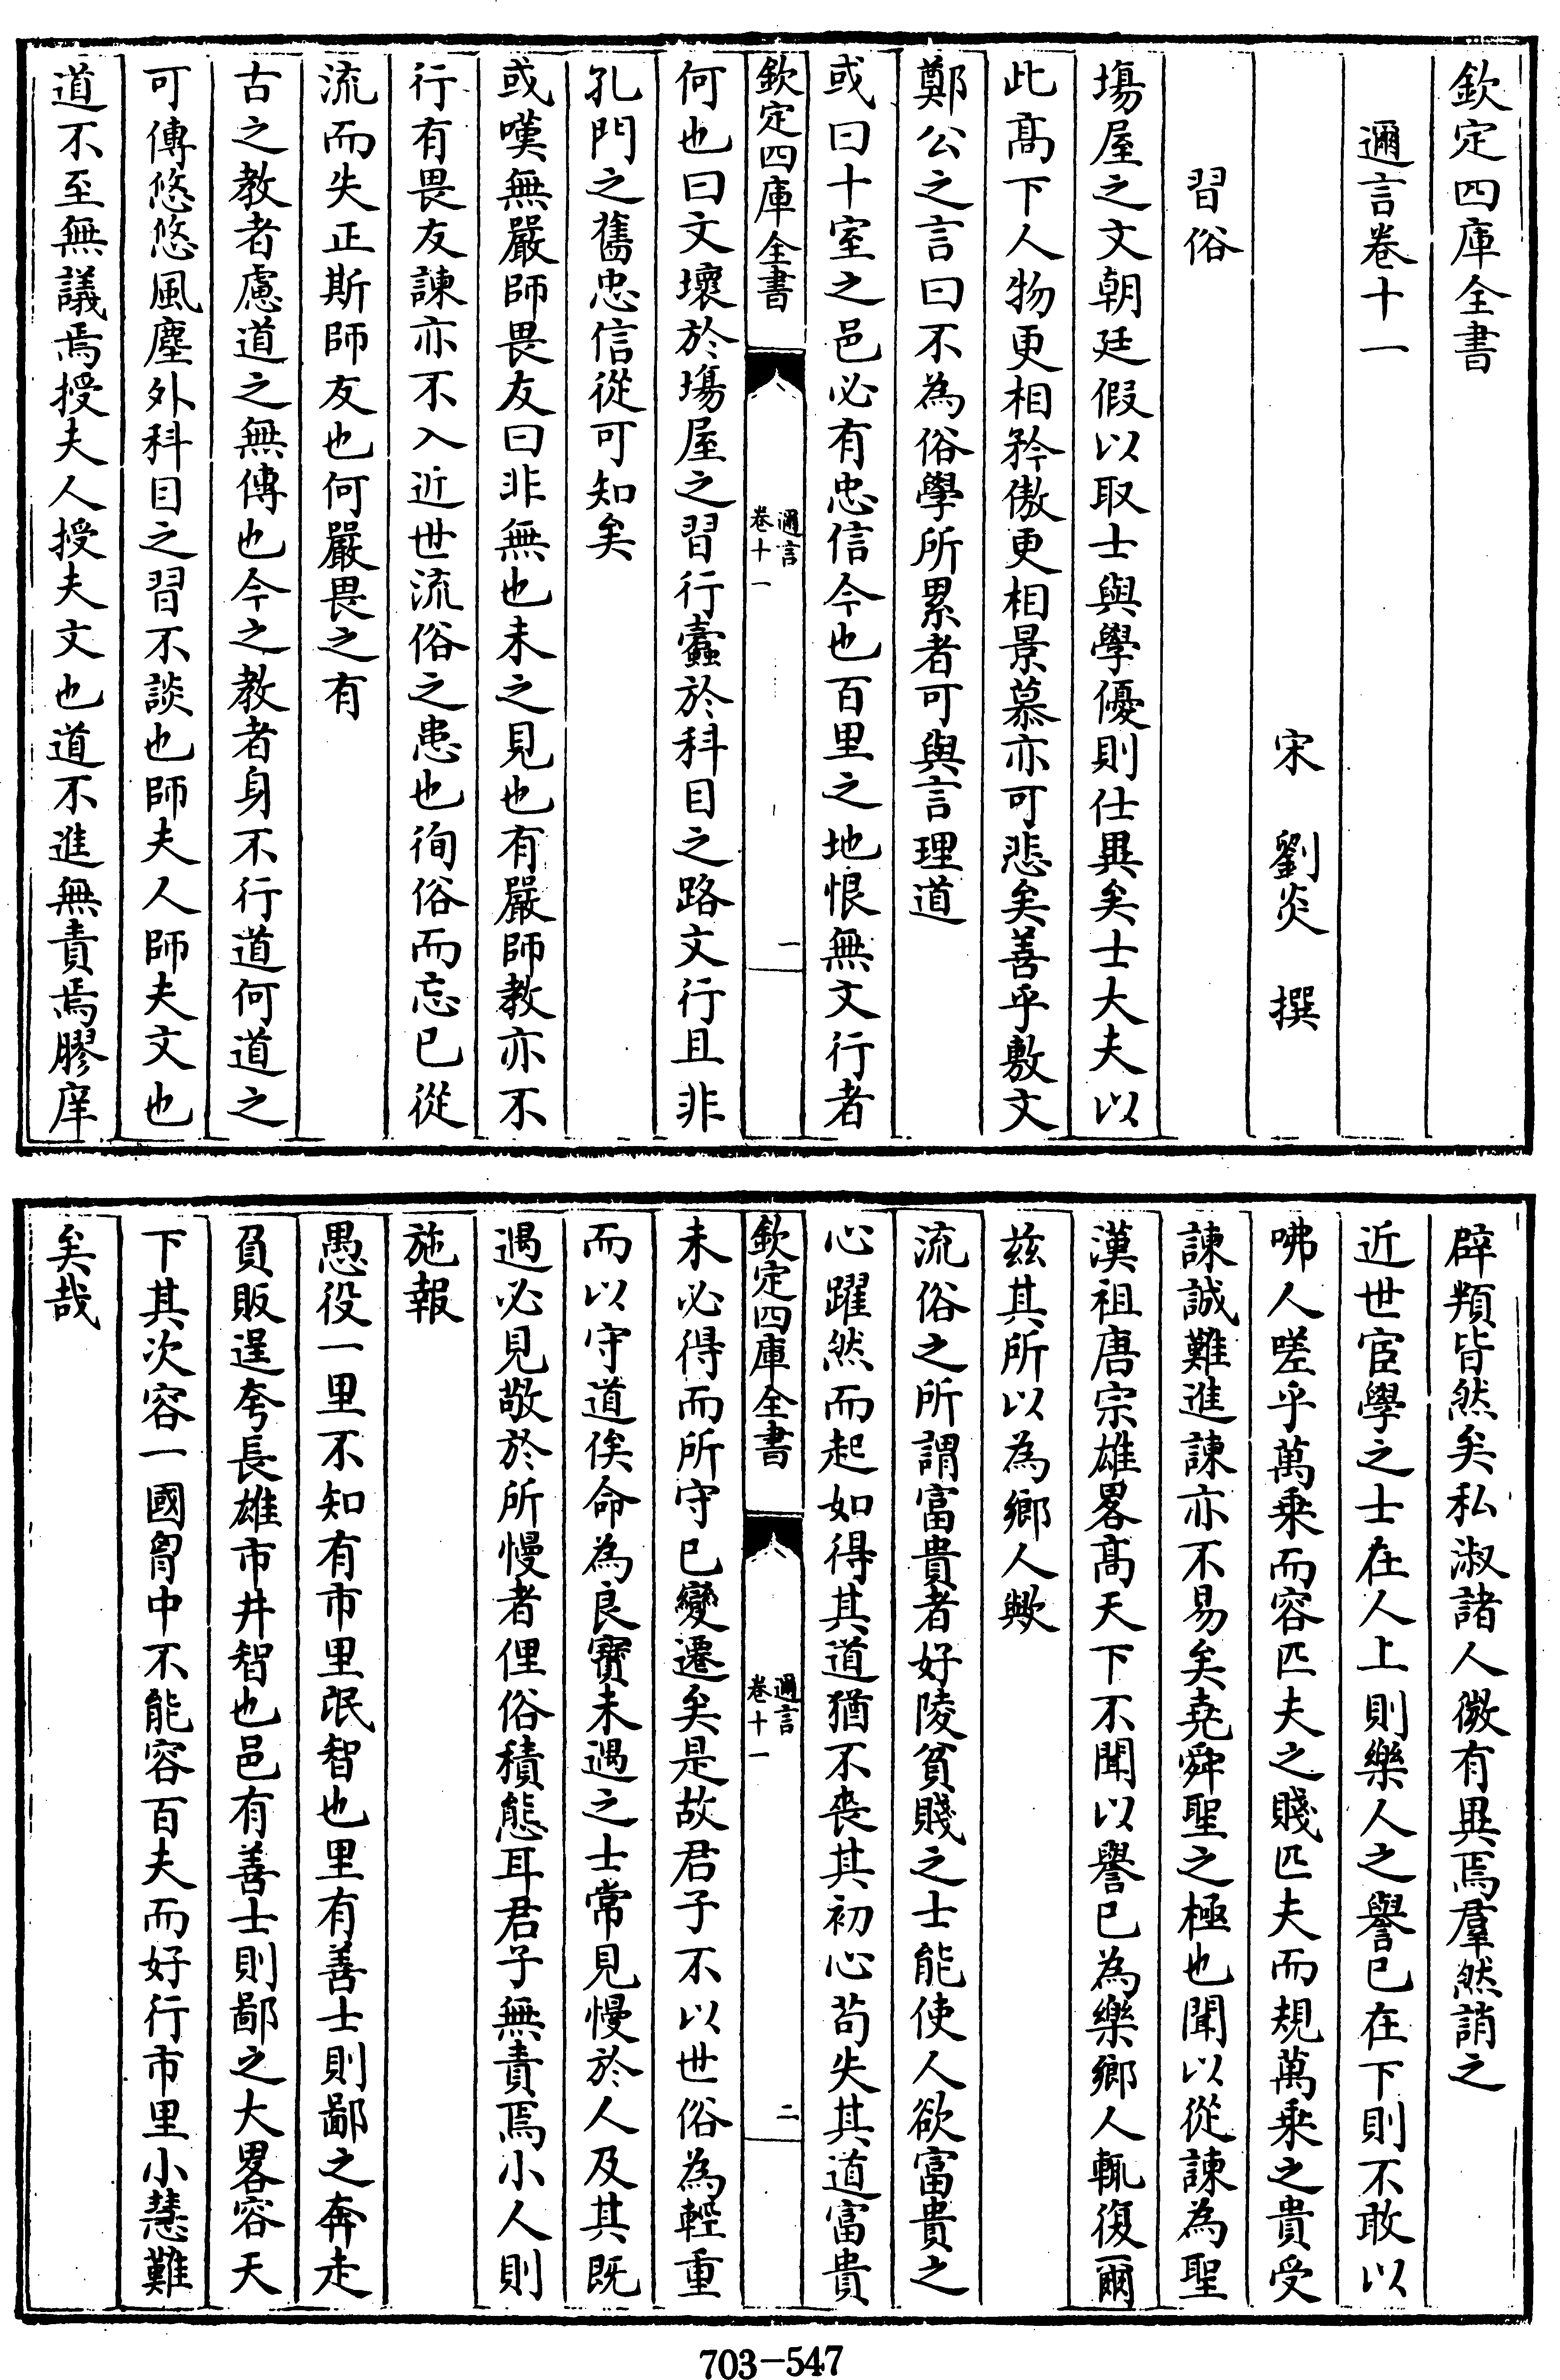 欽定四庫全書
邇言卷十一
宋 劉炎 撰
習俗
塲屋之文朝廷假以取士與學優則仕異矣士大夫以
此髙下人物更相矜傲更相景慕亦可悲矣善乎敷文
鄭公之言曰不為俗學所累者可與言理道
或曰十室之邑必有忠信今也百里之地恨無文行者
欽定四庫全書
邇言
卷十一
一
何也曰文壞於塲屋之習行蠧於科目之路文行且非
孔門之舊忠信從可知矣
或嘆無嚴師畏友曰非無也未之見也有嚴師教亦不
行有畏友諫亦不入近世流俗之患也徇俗而忘已從
流而失正斯師友也何嚴畏之有
古之教者慮道之無傳也今之教者身不行道何道之
可傳悠悠風塵外科目之習不談也師夫人師夫文也
道不至無議焉授夫人授夫文也道不進無責焉膠庠
辟頖皆然矣私淑諸人微有異焉羣然誚之
近世宦學之士在人上則樂人之譽已在下則不敢以
咈人嗟乎萬乗而容匹夫之賤匹夫而規萬乗之貴受
諫誠難進諫亦不易矣堯舜聖之極也聞以從諫為聖
漢祖唐宗雄畧髙天下不聞以譽已為樂鄉人輒復爾
兹其所以為鄉人歟
流俗之所謂富貴者好陵貧賤之士能使人欲富貴之
心躍然而起如得其道猶不喪其初心苟失其道富貴
欽定四庫全書
邇言
卷十一
二
未必得而所守已變遷矣是故君子不以世俗為輕重
而以守道俟命為良寶未遇之士常見慢於人及其既
遇必見敬於所慢者俚俗積態耳君子無責焉小人則
施報
愚役一里不知有市里氓智也里有善士則鄙之奔走
負販逞夸長雄市井智也邑有善士則鄙之大畧容天
下其次容一國胷中不能容百夫而好行市里小慧難
矣哉
703-547